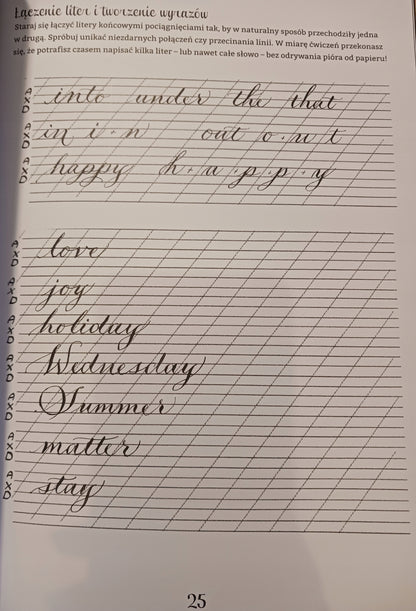 Łączenie liter i tworzenie wyrazów
Staraj się łączyć litery końcowymi pociągnięciami tak, by w naturalny sposób przechodziły jedna
w drugą. Spróbuj unikać niezdarnych połączeń czy przecinania linii. W miarę ćwiczeń przekonasz
się, że potrafisz czasem napisać kilka liter – lub nawet całe słowo – bez odrywania pióra od papieru!
A
X into under the that
D
A
X in i · n out o · u · t
D
A
X happy h · a · p · p · y
D
A
X love
D
A
X joy
D
A
X holiday
D
A
X Wednesday
D
A
X Summer
D
A
X matter
D
A
X stay
D
25